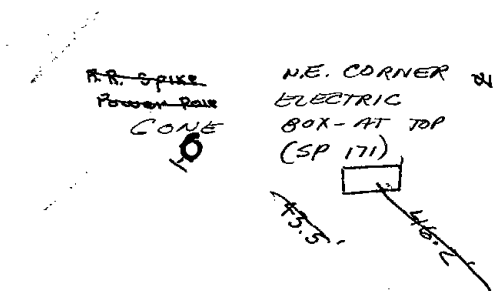 R.R. Spike
Power Pole
CONE
N.E. CORNER
ELECTRIC
BOX-AT TOP
(SP 171)
43.5'